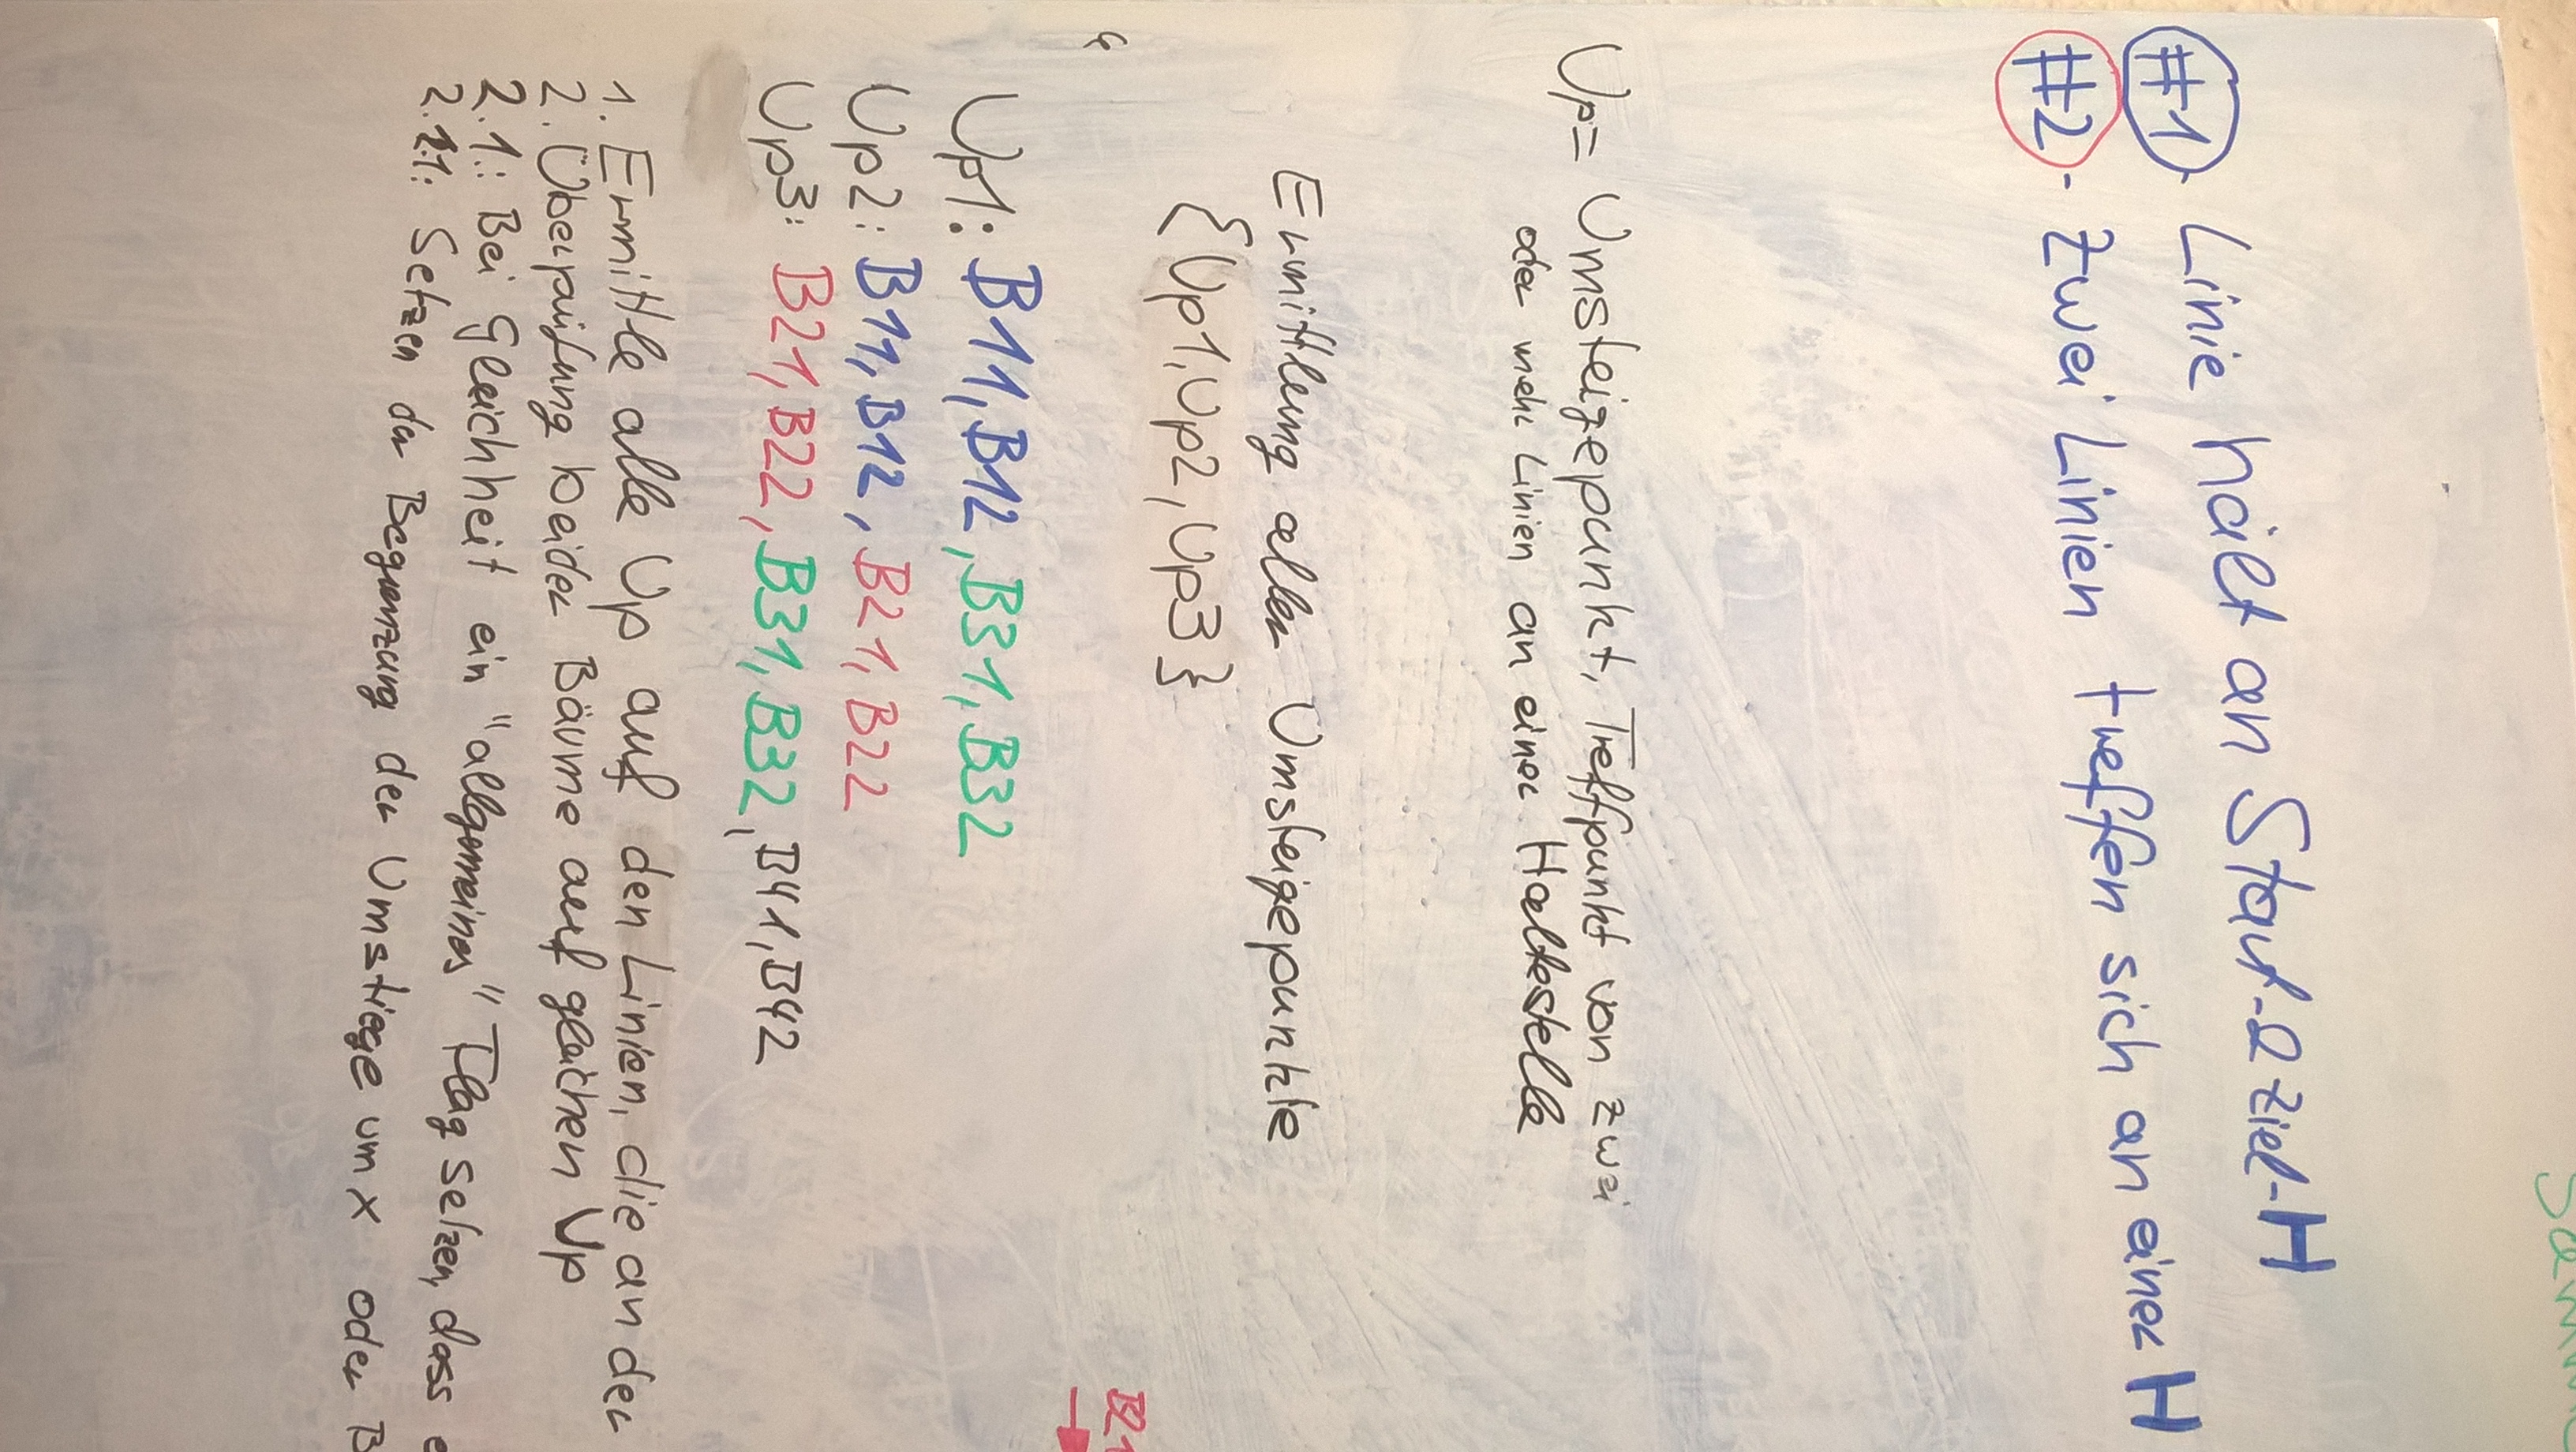 #1 - Linie hält an Start- & Ziel-H
#2 - Zwei Linien treffen sich an einer H
Up= Umsteigepunkt, Treffpunkt von zwei
oder mehr Linien an einer Haltestelle
Ermittlung aller Umsteigepunkte
{Up1, Up2, Up3}
B21
Up1: B11, B12, B31, B32
Up2: B11, B12, B21, B22
Up3: B21, B22, B31, B32, B41, B42
1. Ermittle alle Up auf den Linien, die an der
2. Überprüfung beider Bäume auf gleichen Up
2.1.: Bei Gleichheit ein "allgemeines" Flag setzen, dass
2.1.1: Setzen der Begrenzung der Umstiege um x oder B